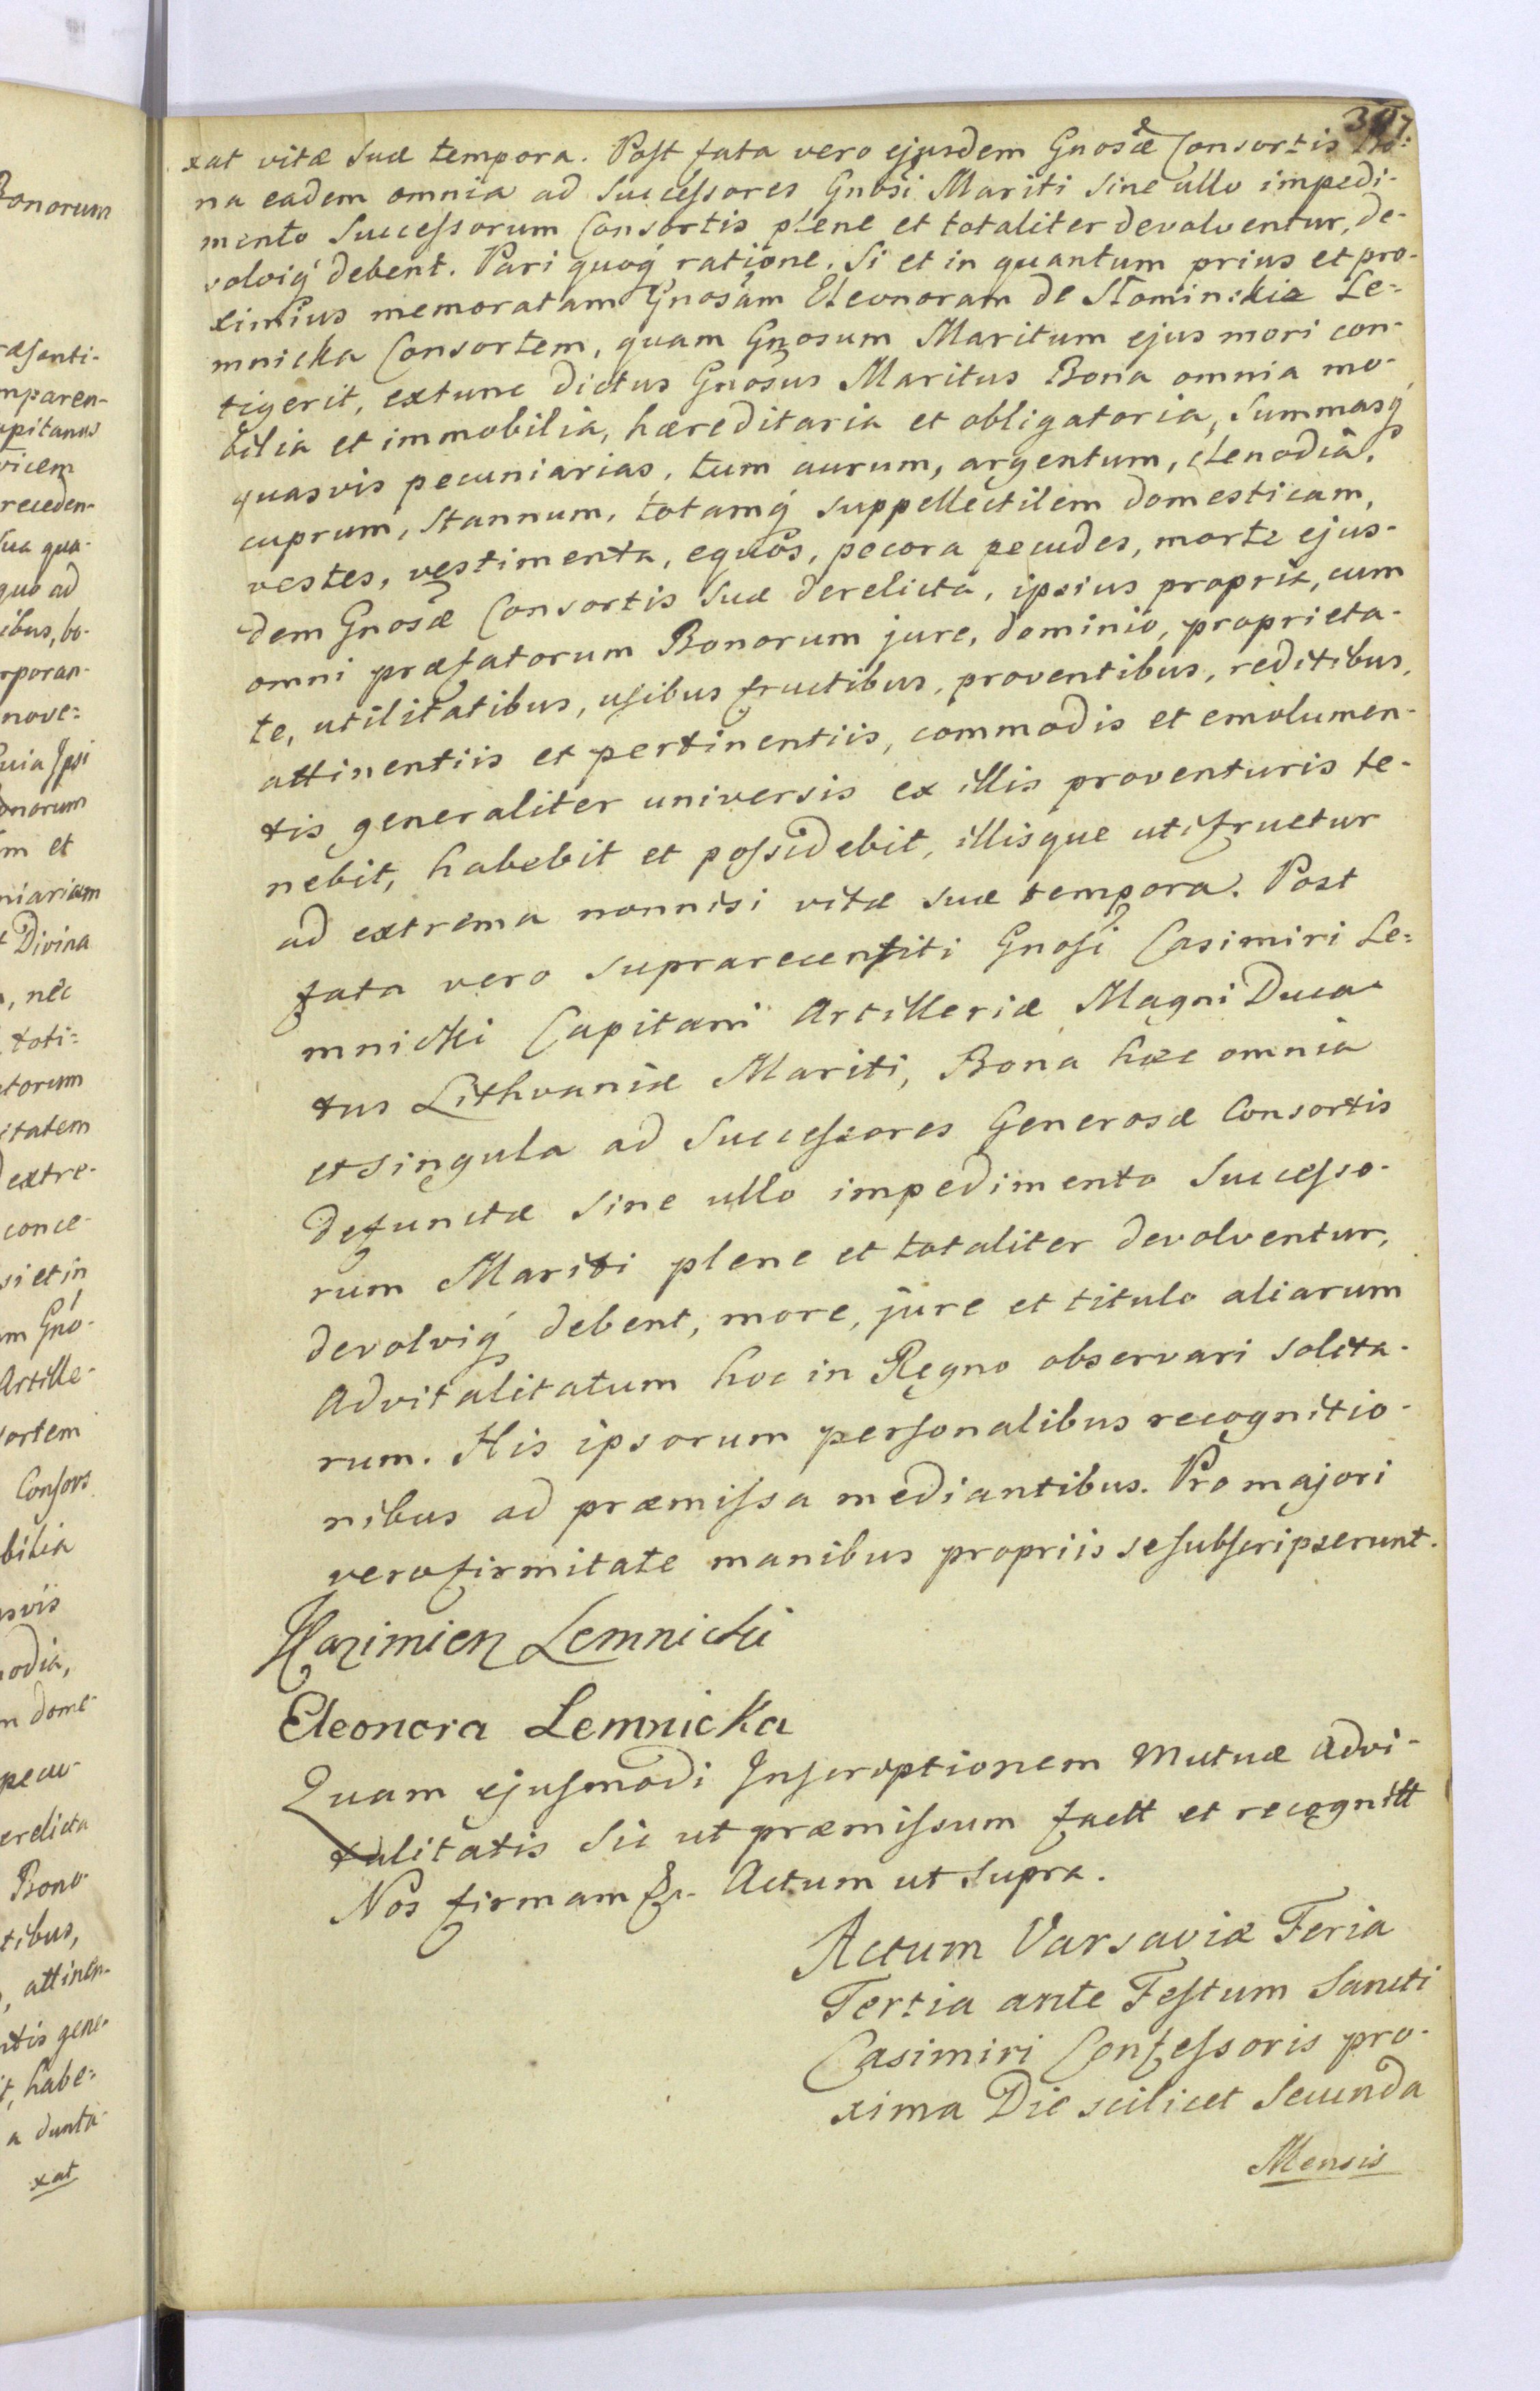 307.
xat vitæ suæ tempora. Post fata vero ejusdem Gnosæ Consortis Bo-
na eadem omnia ad Successores Gnosi Mariti sine ullo impedi-
mento Successorum Consortis plene et totaliter devolventur, de-
volviq́ debent. Pari quoq́ ratione. Si et in quantum prius et pro-
ximius memoratam Gnosam Eleonoram de Słominskie Le=
mnicka Consortem, quam Gnosum Maritum ejus mori con-
tigerit, extunc dictus Gnosus Maritus Bona omnia mo-
bilia et immobilia, hæreditaria et obligatoria, summasq́
quasvis pecuniarias, tum aurum, argentum, clenodia,
cuprum, stannum, totamq́ suppellectilem domesticam,
vestes, vestimenta, equos, pecora pecudes, morte ejus-
dem Gnosæ Consortis suæ derelicta, ipsius propria, cum
omni præfatorum Bonorum jure, dominio, proprieta-
te, utilitatibus, usibus fructibus, proventibus, reditibus,
attinentiis et pertinentiis, commodis et emolumen-
tis generaliter universis ex illis proventuris te-
nebit, habebit et possidebit, illisque utifruetur
ad extrema nonnisi vitæ suæ tempora. Post
fata vero suprarecensiti Gnosi Casimiri Le=
mnicki Capitani Artilleriæ Magni Duca-
tus Lithvaniæ Mariti, Bona hæc omnia
et singula ad Successores Generosæ Consortis
defunctæ sine ullo impedimento Successo-
rum Mariti plene et totaliter devolventur,
devolviq́ debent, more, jure et titulo aliarum
Advitalitatum hoc in Regno observari solita-
rum. His ipsorum personalibus recognitio-
nibus ad præmissa mediantibus. Pro majori
vero firmitate manibus propriis se subscripserunt.
Kazimierz Lemnicki
Eleonora Lemnicka
Quam ejusmodi Inscriptionem Mutuæ Advi-
talitatis sic ut præmissum factt et recognitt
Nos firmam &c. Actum ut supra.
Actum Varsaviæ Feria
Tertia ante Festum Sancti
Casimiri Confessoris pro-
xima Die scilicet Secunda
Mensis